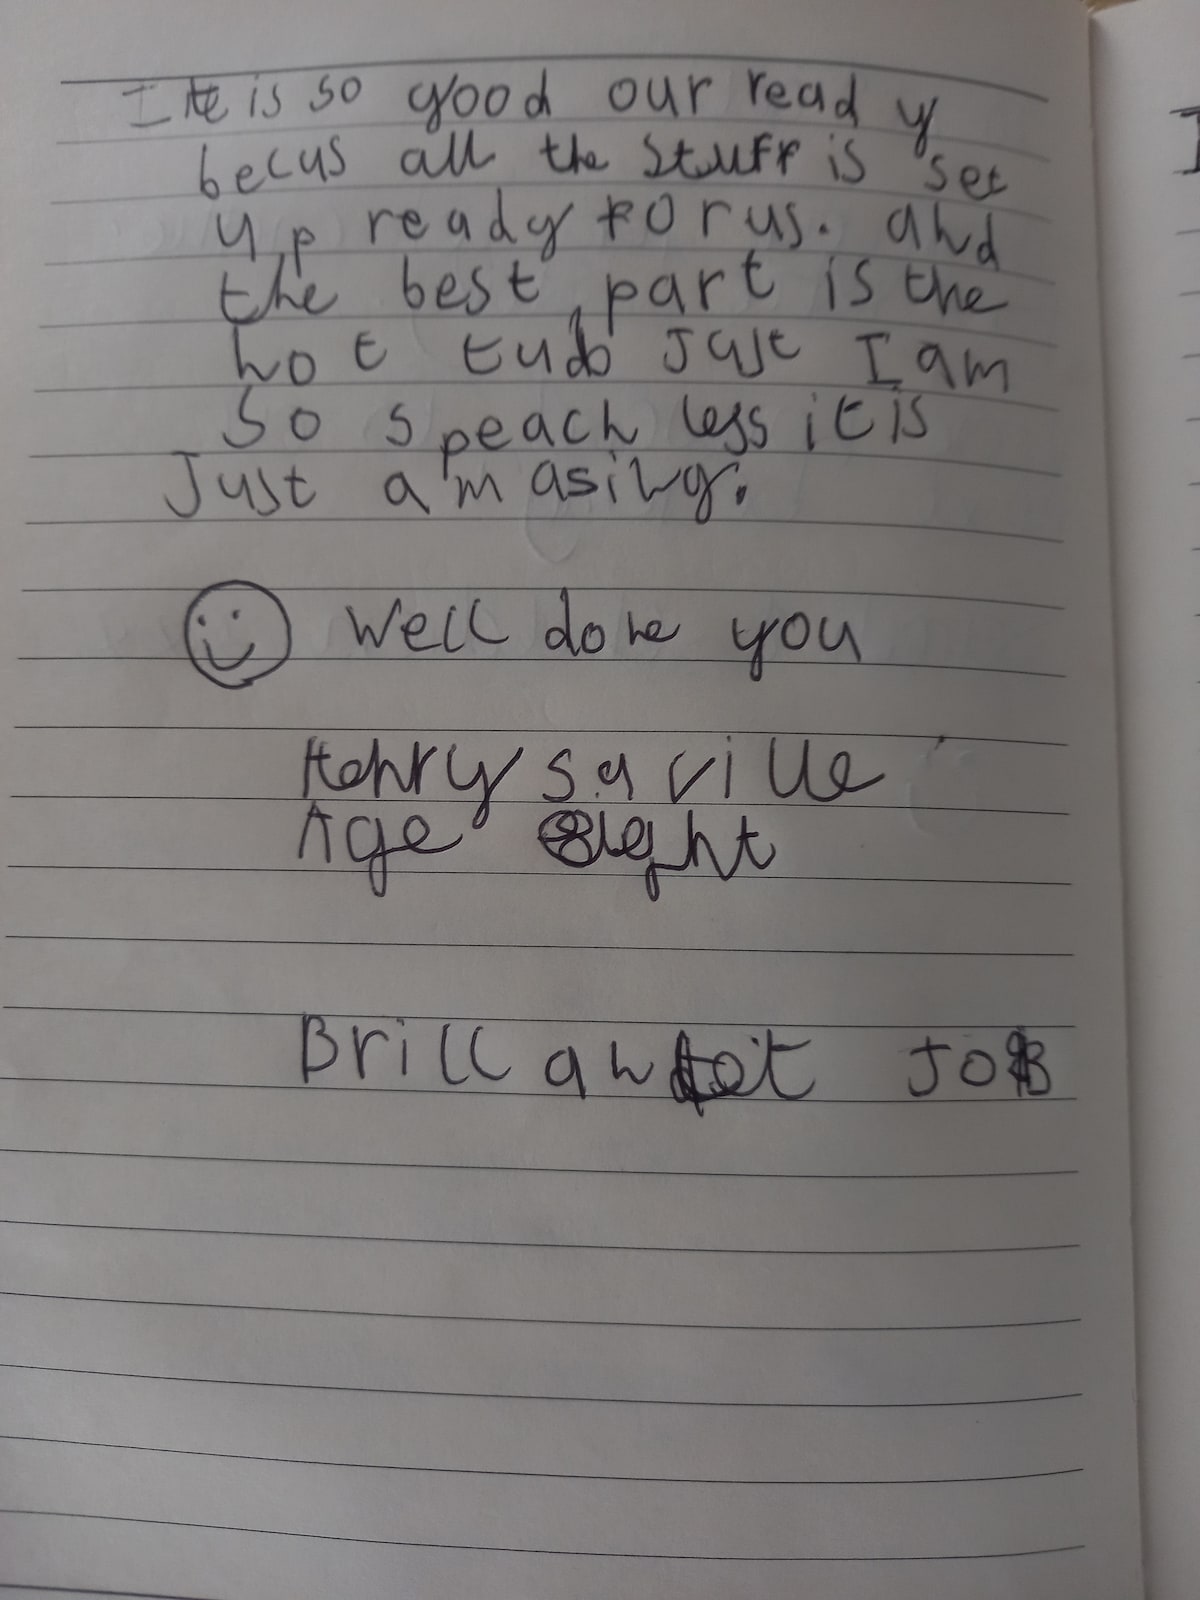 It is so good our ready
becus all the stuff is set
up ready for us. and
the best part is the
hot tub Just I am
so speach less it is
Just amasing.
Well done you
Henry saville
Age eight
Brillant JoB
I